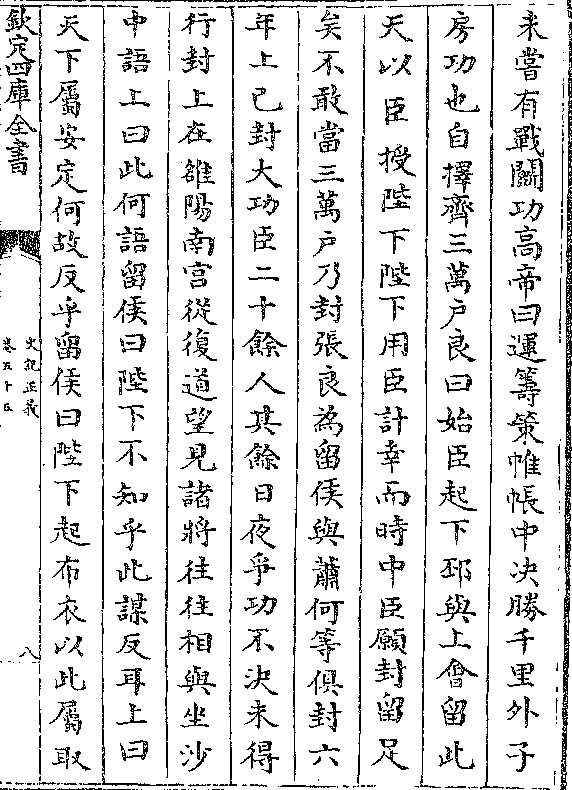 未嘗有戰鬬功高帝曰運籌策帷帳中决勝千里外子
房功也自擇齊三萬戸良曰始臣起下邳與上會留此
天以臣授陛下陛下用臣計幸而時中臣願封留足
矣不敢當三萬戸乃封張良為留侯與蕭何等俱封六
年上已封大功臣二十餘人其餘日夜爭功不決未得
行封上在雒陽南宫從復道望見諸將往往相與坐沙
中語上曰此何語留侯曰陛下不知乎此謀反耳上曰
天下屬安定何故反乎留侯曰陛下起布衣以此屬取
欽定四庫全書
史記正義
卷五十五
八